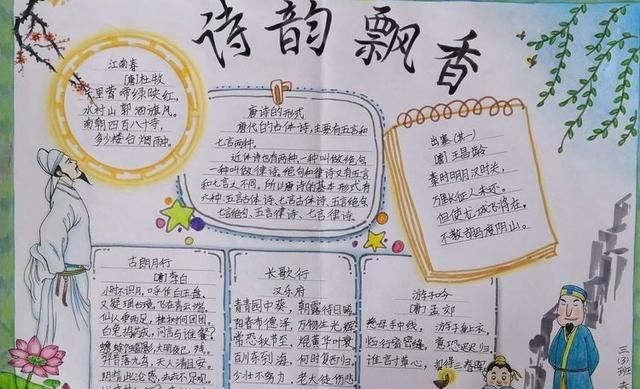 诗韵飘香
江南春
[唐]杜牧
千里莺啼绿映红,
水村山郭酒旗风。
南朝四百八十寺,
多少楼台烟雨中。
唐诗的形式
唐代的古体诗,主要有五言和
七言两种。
近体诗也有两种,一种叫做绝句
一种叫做律诗。绝句和律诗又有五言
和七言之不同。所以唐诗的基本形式有
六种:五言古体诗、七言古体诗、五言绝句、
七言绝句、五言律诗、七言律诗。
出塞(其一)
[唐]王昌龄
秦时明月汉时关,
万里长征人未还。
但使龙城飞将在,
不教胡马度阴山。
古朗月行
[唐]李白
小时不识月,呼作白玉盘
又疑瑶台镜,飞在青云端
仙人垂两足,桂树何团团
白兔捣药成,问言与谁餐?
蟾蜍蚀圆影,大明夜已残。
羿昔落九乌,天人清且安。
阴精此沦惑,去去不足观
长歌行
汉乐府
青青园中葵,朝露待日晞
阳春布德泽,万物生光辉
常恐秋节至,焜黄华叶衰
百川东到海,何时复西归
少壮不努力,老大徒伤悲
游子吟
[唐]孟郊
慈母手中线,游子身上衣
临行密密缝,意恐迟迟归
谁言寸草心,报得三春晖
三(3)班